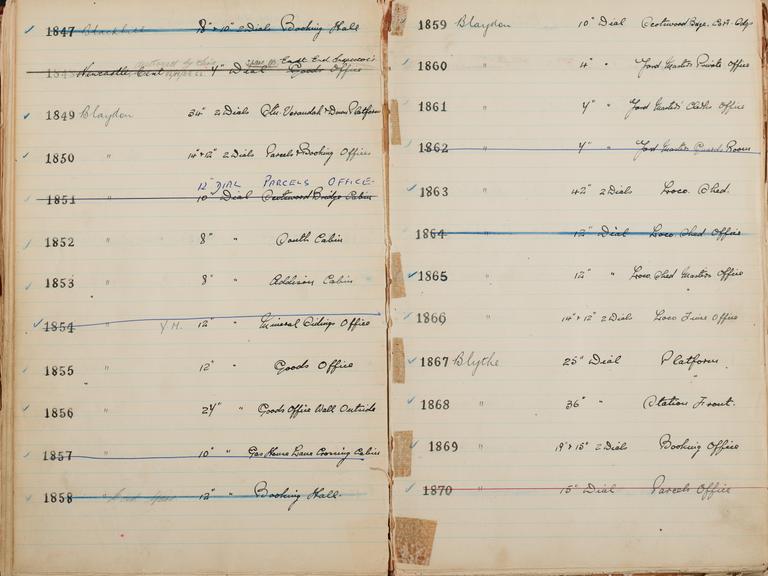 1847 Blackhill 18"+10" 2 Dials Booking Hall
East End Inspector's
1848 Newcastle Cent 4" Dial Goods Office
1849 Blaydon 34" 2 Dials Verandah + Down Platform
1850 " 14"+12" 2 Dials Parcels & Booking Offices
12" DIAL PARCELS OFFICE-
1851 " 10" Dial Bridge Cabin
1852 " 8" " South Cabin
1853 " 8" " Addison Cabin
1854 " Y.M. 12" " Mineral Sidings Office
1855 " 12" " Goods Office
1856 " 24" " Goods Office Wall Outside
1857 " 10" " Gas House Lane Crossing Cabin
1858 " 12" " Booking Hall.
1859 Blaydon 10" Dial
1860 " 4" " Yard Masters Private Office
1861 " 4" " Yard Masters' Clerks Office
1862 " 4" " Yard Masters Guards Room
1863 " 42" 2 Dials Loco. Shed.
1864 " 12" Dial Loco. Shed Office
1865 " 12" " Loco. Shed Masters Office
1866 " 14"+12" 2 Dials Loco Time Office
1867 Blythe 25" Dial Platform
1868 " 36" " Station Front.
1869 " 2 Dials Booking Office
1870 " 15" Dial Parcels Office